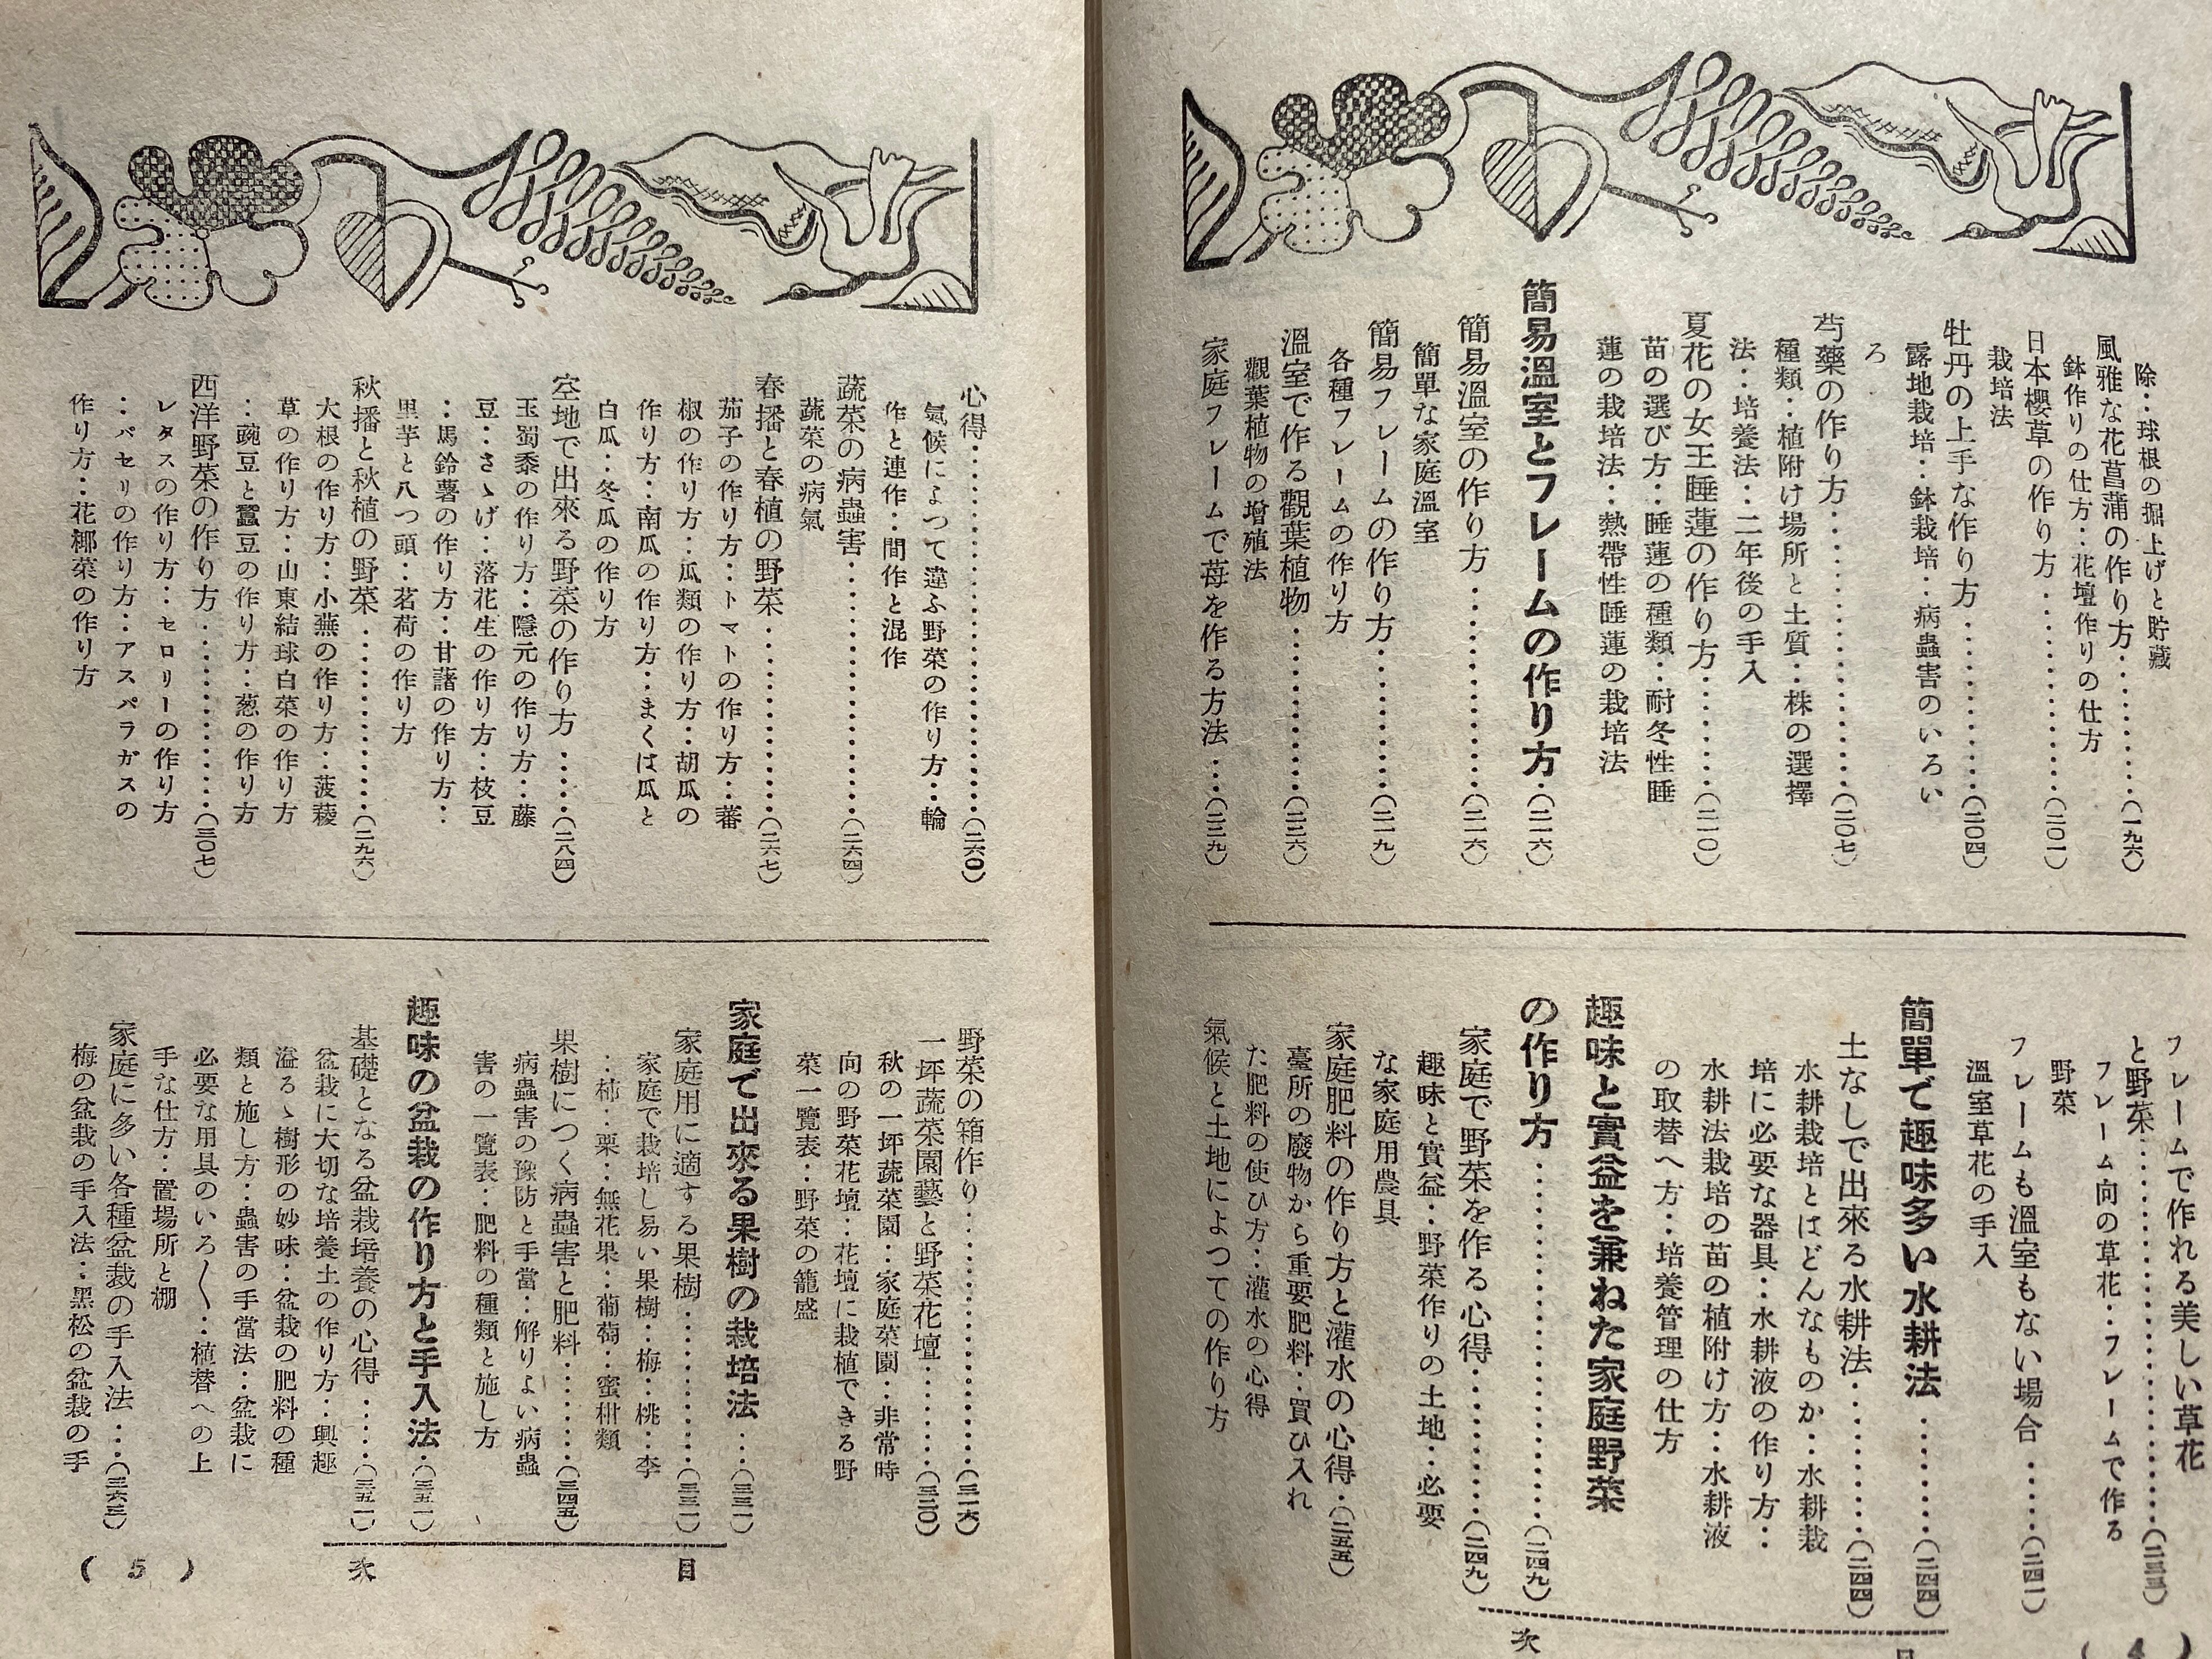 除‥球根の掘上げと貯藏
風雅な花菖蒲の作り方…………(一九六)
鉢作りの仕方‥花壇作りの仕方
日本櫻草の作り方…………(二〇一)
栽培法
牡丹の上手な作り方…………(二〇四)
露地栽培‥鉢栽培‥病蟲害のいろい
ろ
芍藥の作り方…………(二〇七)
種類‥植附け場所と土質‥株の選擇
法‥培養法‥二年後の手入
夏花の女王睡蓮の作り方…………(二一〇)
苗の選び方‥睡蓮の種類‥耐冬性睡
蓮の栽培法‥熱帶性睡蓮の栽培法
簡易溫室とフレームの作り方・(二一六)
簡易溫室の作り方…………(二一六)
簡單な家庭溫室
簡易フレームの作り方…………(二一九)
各種フレームの作り方
溫室で作る觀葉植物…………(二二六)
觀葉植物の增殖法
家庭フレームで苺を作る方法…(二二九)
フレームで作れる美しい草花
と野菜…………(二三三)
フレーム向の草花‥フレームで作る
野菜
フレームも溫室もない場合……(二四一)
溫室草花の手入
簡單で趣味多い水耕法…………(二四四)
土なしで出來る水耕法…………(二四四)
水耕栽培とはどんなものか‥水耕栽
培に必要な器具‥水耕液の作り方‥
水耕法栽培の苗の植附け方‥水耕液
の取替へ方‥培養管理の仕方
趣味と實益を兼ねた家庭野菜
の作り方…………(二四九)
家庭で野菜を作る心得…………(二四九)
趣味と實益‥野菜作りの土地‥必要
な家庭用農具
家庭肥料の作り方と灌水の心得・(二五五)
臺所の廢物から重要肥料‥買ひ入れ
た肥料の使ひ方‥灌水の心得
氣候と土地によつての作り方
目
次
(4)
心得…………(二六〇)
氣候によつて違ふ野菜の作り方‥輪
作と連作‥間作と混作
蔬菜の病蟲害…………(二六四)
蔬菜の病氣
春播と春植の野菜…………(二六七)
茄子の作り方‥トマトの作り方‥蕃
椒の作り方‥瓜類の作り方‥胡瓜の
作り方‥南瓜の作り方‥まくは瓜と
白瓜‥冬瓜の作り方
空地で出來る野菜の作り方……(二八四)
玉蜀黍の作り方‥隱元の作り方‥藤
豆‥さゝげ‥落花生の作り方‥枝豆
‥馬鈴薯の作り方‥甘藷の作り方‥
里芋と八つ頭‥茗荷の作り方
秋播と秋植の野菜…………(二九六)
大根の作り方‥小蕪の作り方‥菠薐
草の作り方‥山東結球白菜の作り方
‥豌豆と蠶豆の作り方‥葱の作り方
西洋野菜の作り方…………(三〇七)
レタスの作り方‥セロリーの作り方
‥パセリの作り方‥アスパラガスの
作り方‥花椰菜の作り方
野菜の箱作り…………(三一六)
一坪蔬菜園藝と野菜花壇…………(三二〇)
秋の一坪蔬菜園‥家庭菜園‥非常時
向の野菜花壇‥花壇に栽植できる野
菜一覽表‥野菜の籠盛
家庭で出來る果樹の栽培法…(三三一)
家庭用に適する果樹…………(三三一)
家庭で栽培し易い果樹‥梅‥桃‥李
‥柿‥栗‥無花果‥葡萄‥蜜柑類
果樹につく病蟲害と肥料…………(三四五)
病蟲害の豫防と手當‥解りよい病蟲
害の一覽表‥肥料の種類と施し方
趣味の盆栽の作り方と手入法・(三五一)
基礎となる盆栽培養の心得……(三五一)
盆栽に大切な培養土の作り方‥興趣
溢るゝ樹形の妙味‥盆栽の肥料の種
類と施し方‥蟲害の手當法‥盆栽に
必要な用具のいろ〱‥植替への上
手な仕方‥置場所と棚
家庭に多い各種盆栽の手入法…(三六三)
梅の盆栽の手入法‥黑松の盆栽の手
目
次
(5)